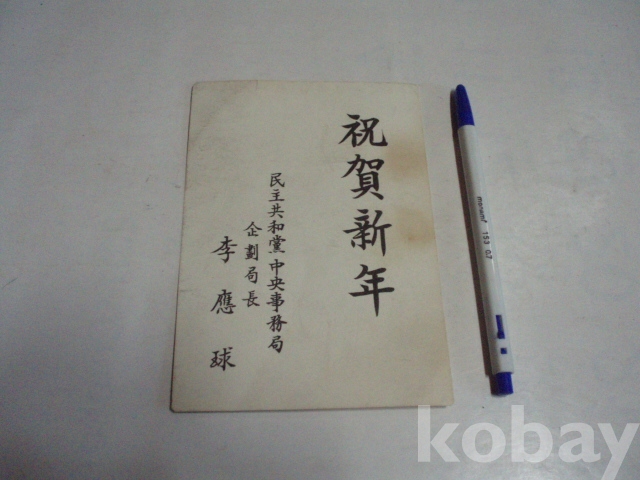 祝賀新年
民主共和黨 中央事務局
企劃局長
李應球
monami 153 0.7
kobay